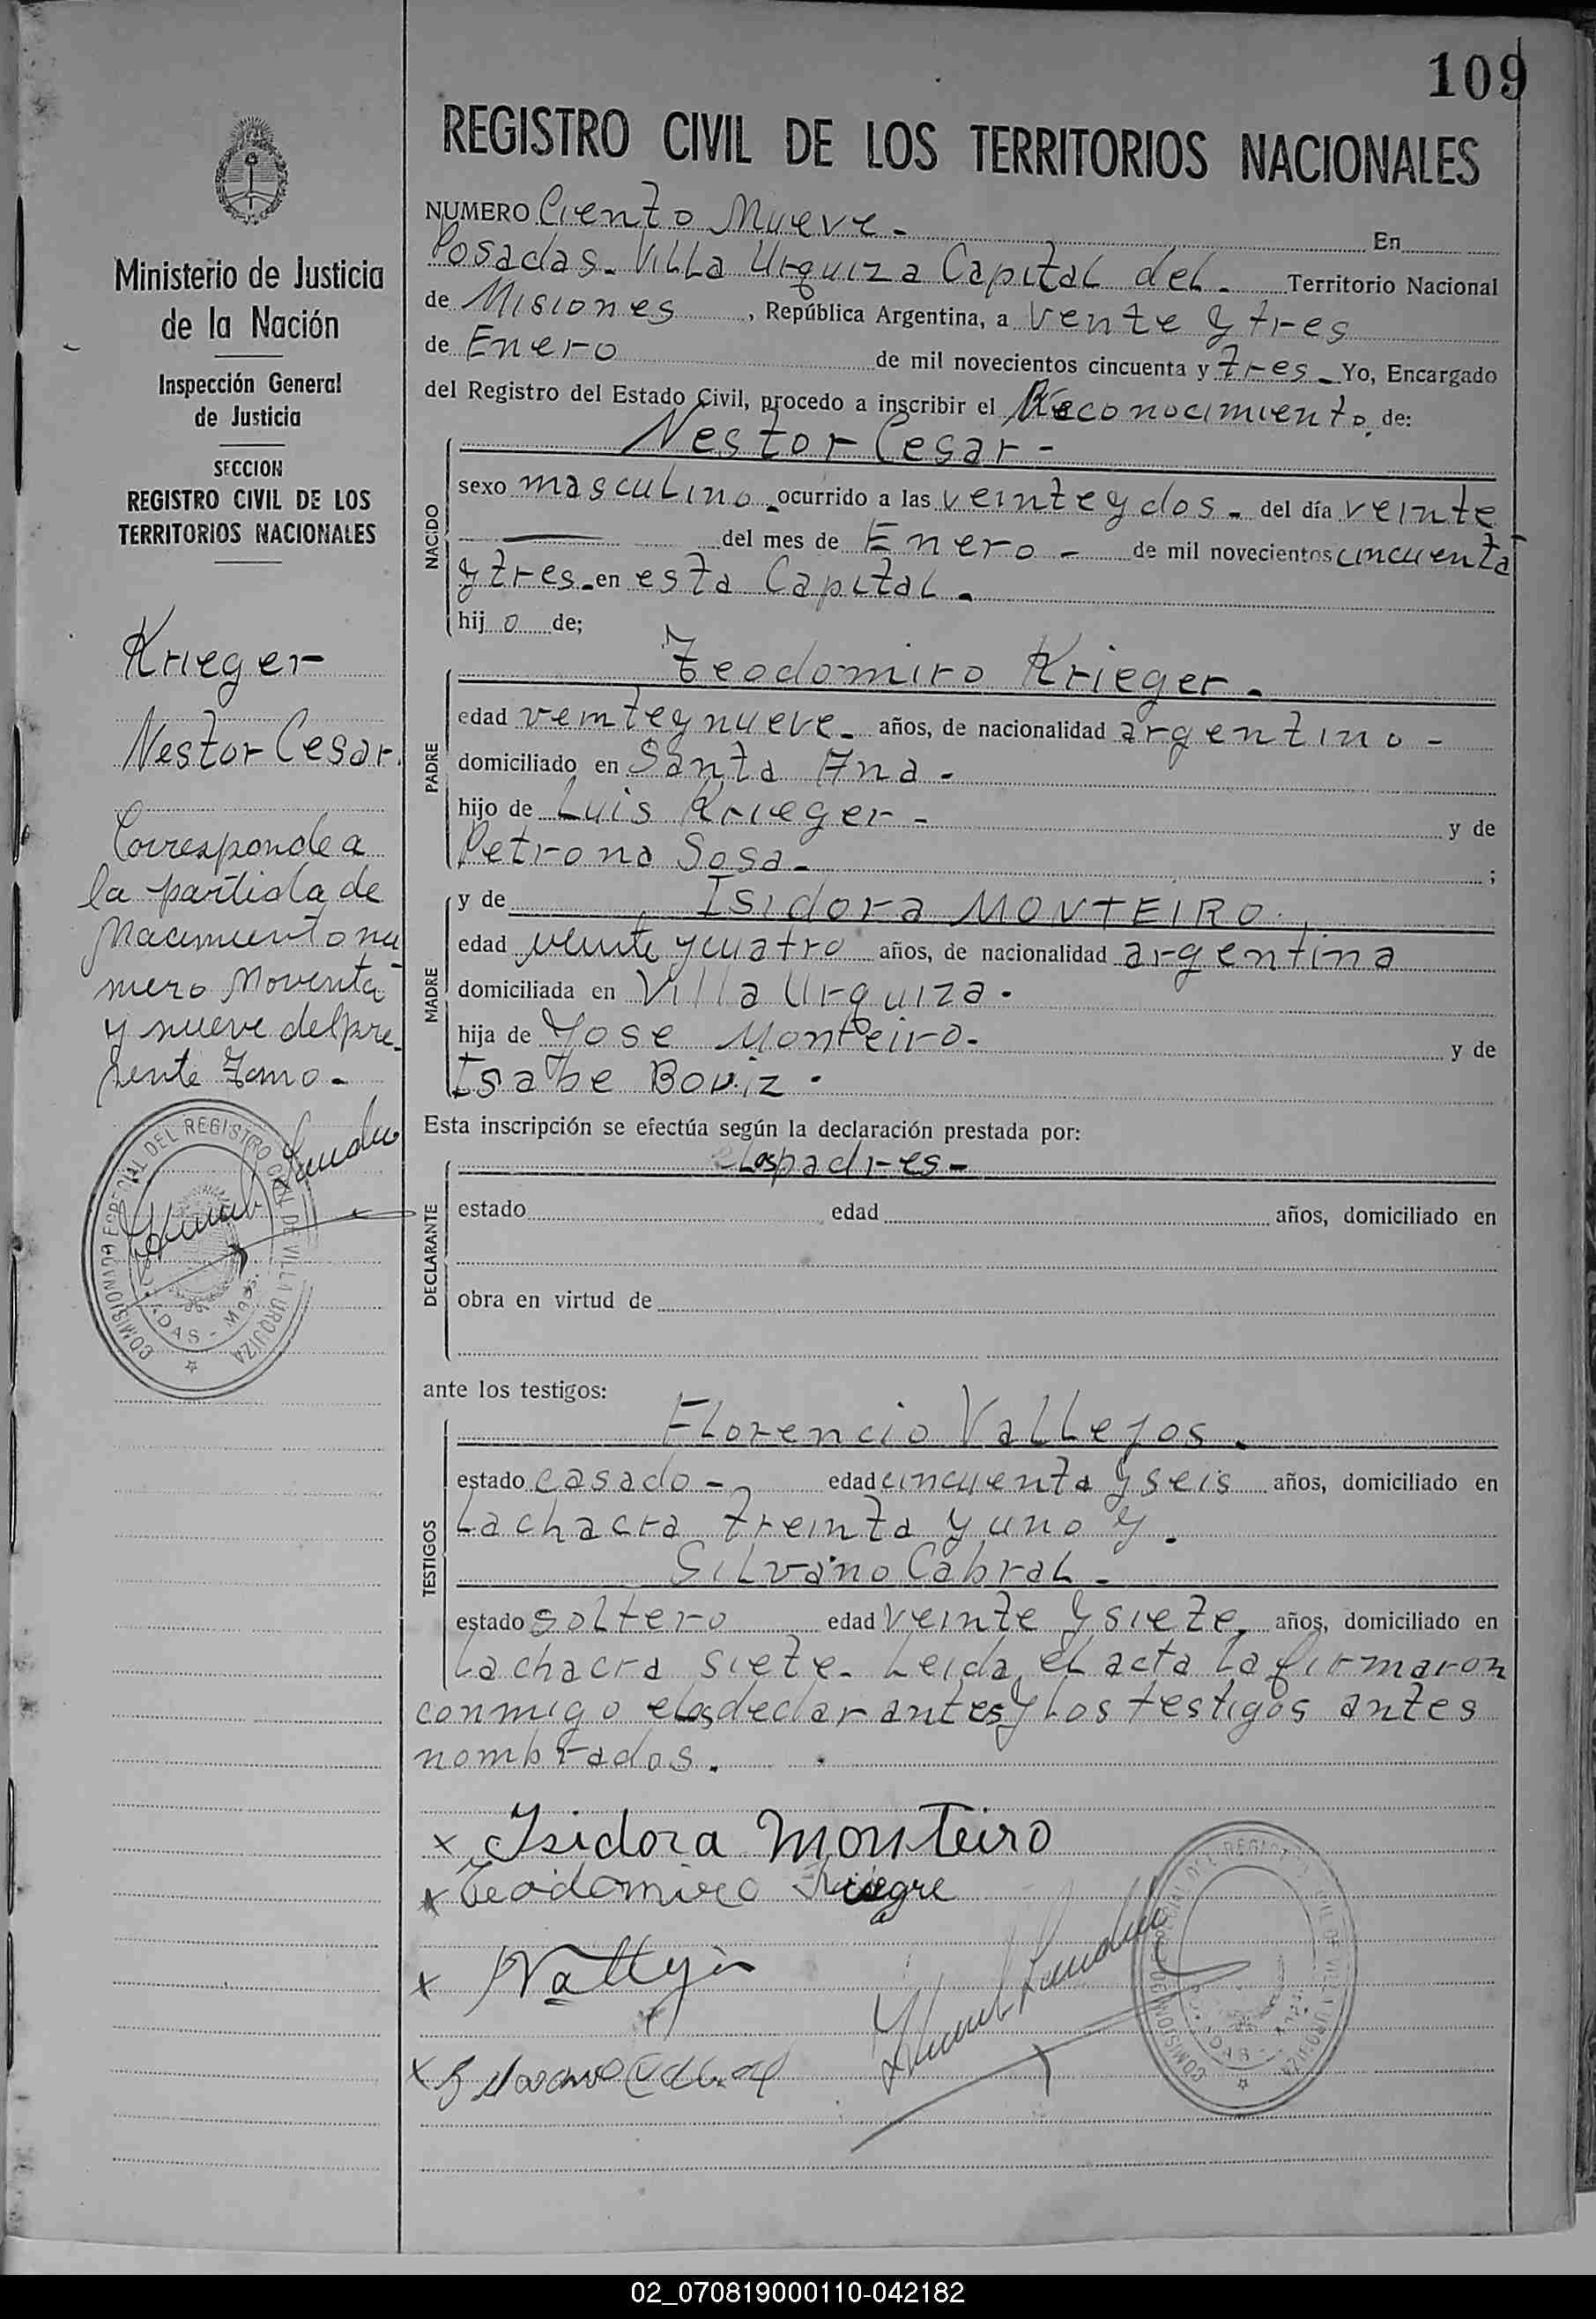 109
REGISTRO CIVIL DE LOS TERRITORIOS NACIONALES
Ministerio de Justicia
de la Nación
Inspección General
de Justicia
SECCION
REGISTRO CIVIL DE LOS
TERRITORIOS NACIONALES
Krieger
Nestor Cesar.
Corresponde a
la partida de
Nacimiento nu
mero Noventa
y nueve del pre
sente Tomo-
COMISIONADA ESPECIAL DEL REGISTRO CIVIL DE VILLA URQUIZA
NUMERO Ciento Nueve - En
Posadas - Villa Urquiza Capital del - Territorio Nacional
de Misiones, República Argentina, a Vente y tres
de Enero de mil novecientos cincuenta y tres - Yo, Encargado
del Registro del Estado Civil, procedo a inscribir el Reconocimiento de:
NACIDO
Nestor Cesar -
sexo masculino - ocurrido a las veinte y dos - del día veinte
del mes de Enero - de mil novecientos cincuenta
y tres - en esta Capital -
hij o de;
PADRE
Teodomiro Krieger -
edad veinte y nueve - años, de nacionalidad argentino -
domiciliado en Santa Ana -
hijo de Luis Krieger - y de
Petrona Sosa - ;
MADRE
y de Isidora MONTEIRO.
edad veinte y cuatro años, de nacionalidad argentina
domiciliada en Villa Urquiza.
hija de Jose Monteiro - y de
Isabe Boviz.
Esta inscripción se efectúa según la declaración prestada por:
DECLARANTE
los padres -
estado edad años, domiciliado en
obra en virtud de
ante los testigos:
TESTIGOS
Florencio Vallejos.
estado casado - edad cincuenta y seis años, domiciliado en
La chacra treinta y uno y.
Silvano Cabral -
estado soltero edad veinte y siete, años, domiciliado en
La chacra siete - Leida el acta la firmaron
conmigo los declarantes y los testigos antes
nombrados.
x Isidora Monteiro
x Teodomiro Kriegre
x
x Silvano Cabral
02_070819000110-042182